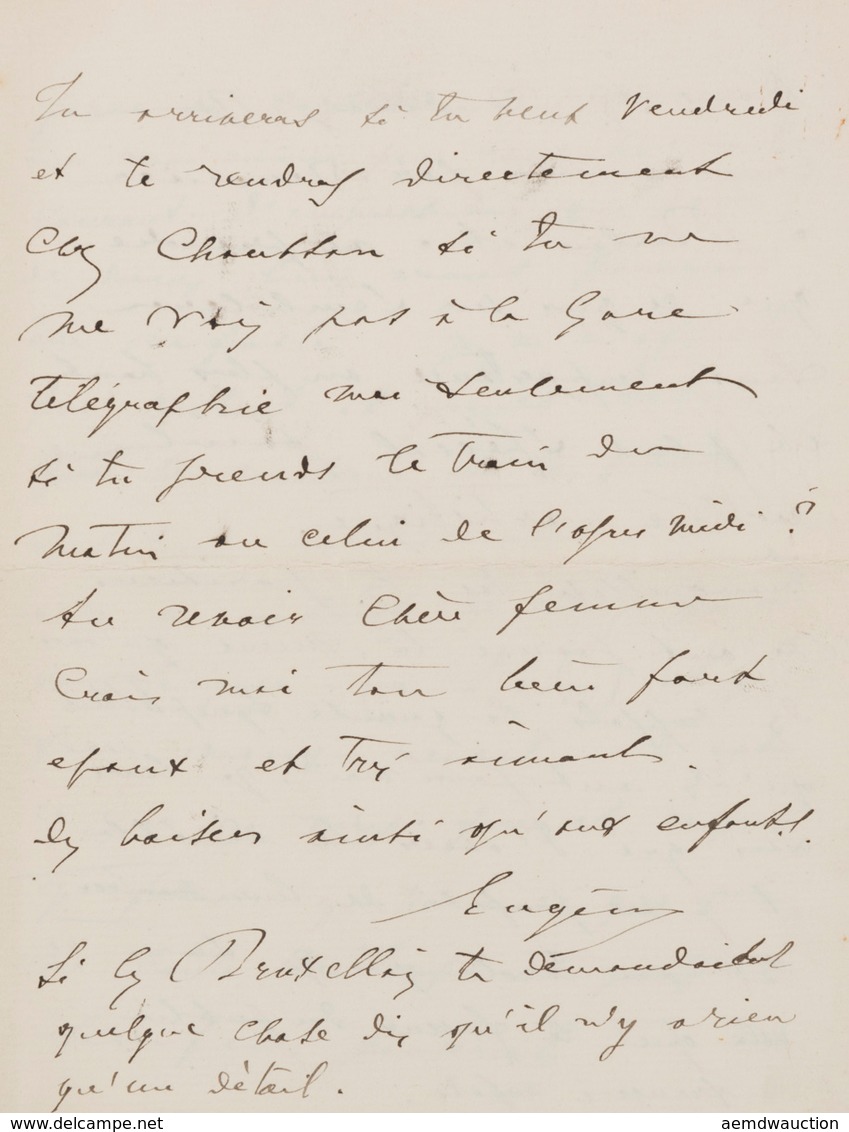 Tu arriveras si tu veux Vendredi
et te rendras directement
Chez Chausson si tu ne
me vois pas à la Gare
télégraphie moi seulement
si tu prends le train du
matin ou celui de l'apres midi ?
Au revoir Chère femme
Crois moi ton bien fort
epoux et très aimant.
des baisers ainsi qu'aux enfants.
Eugène
Si les Bruxellois te demandaient
quelque chose dis qu'il n'y a rien
qu'un détail.
www.delcampe.net
aemdwauction